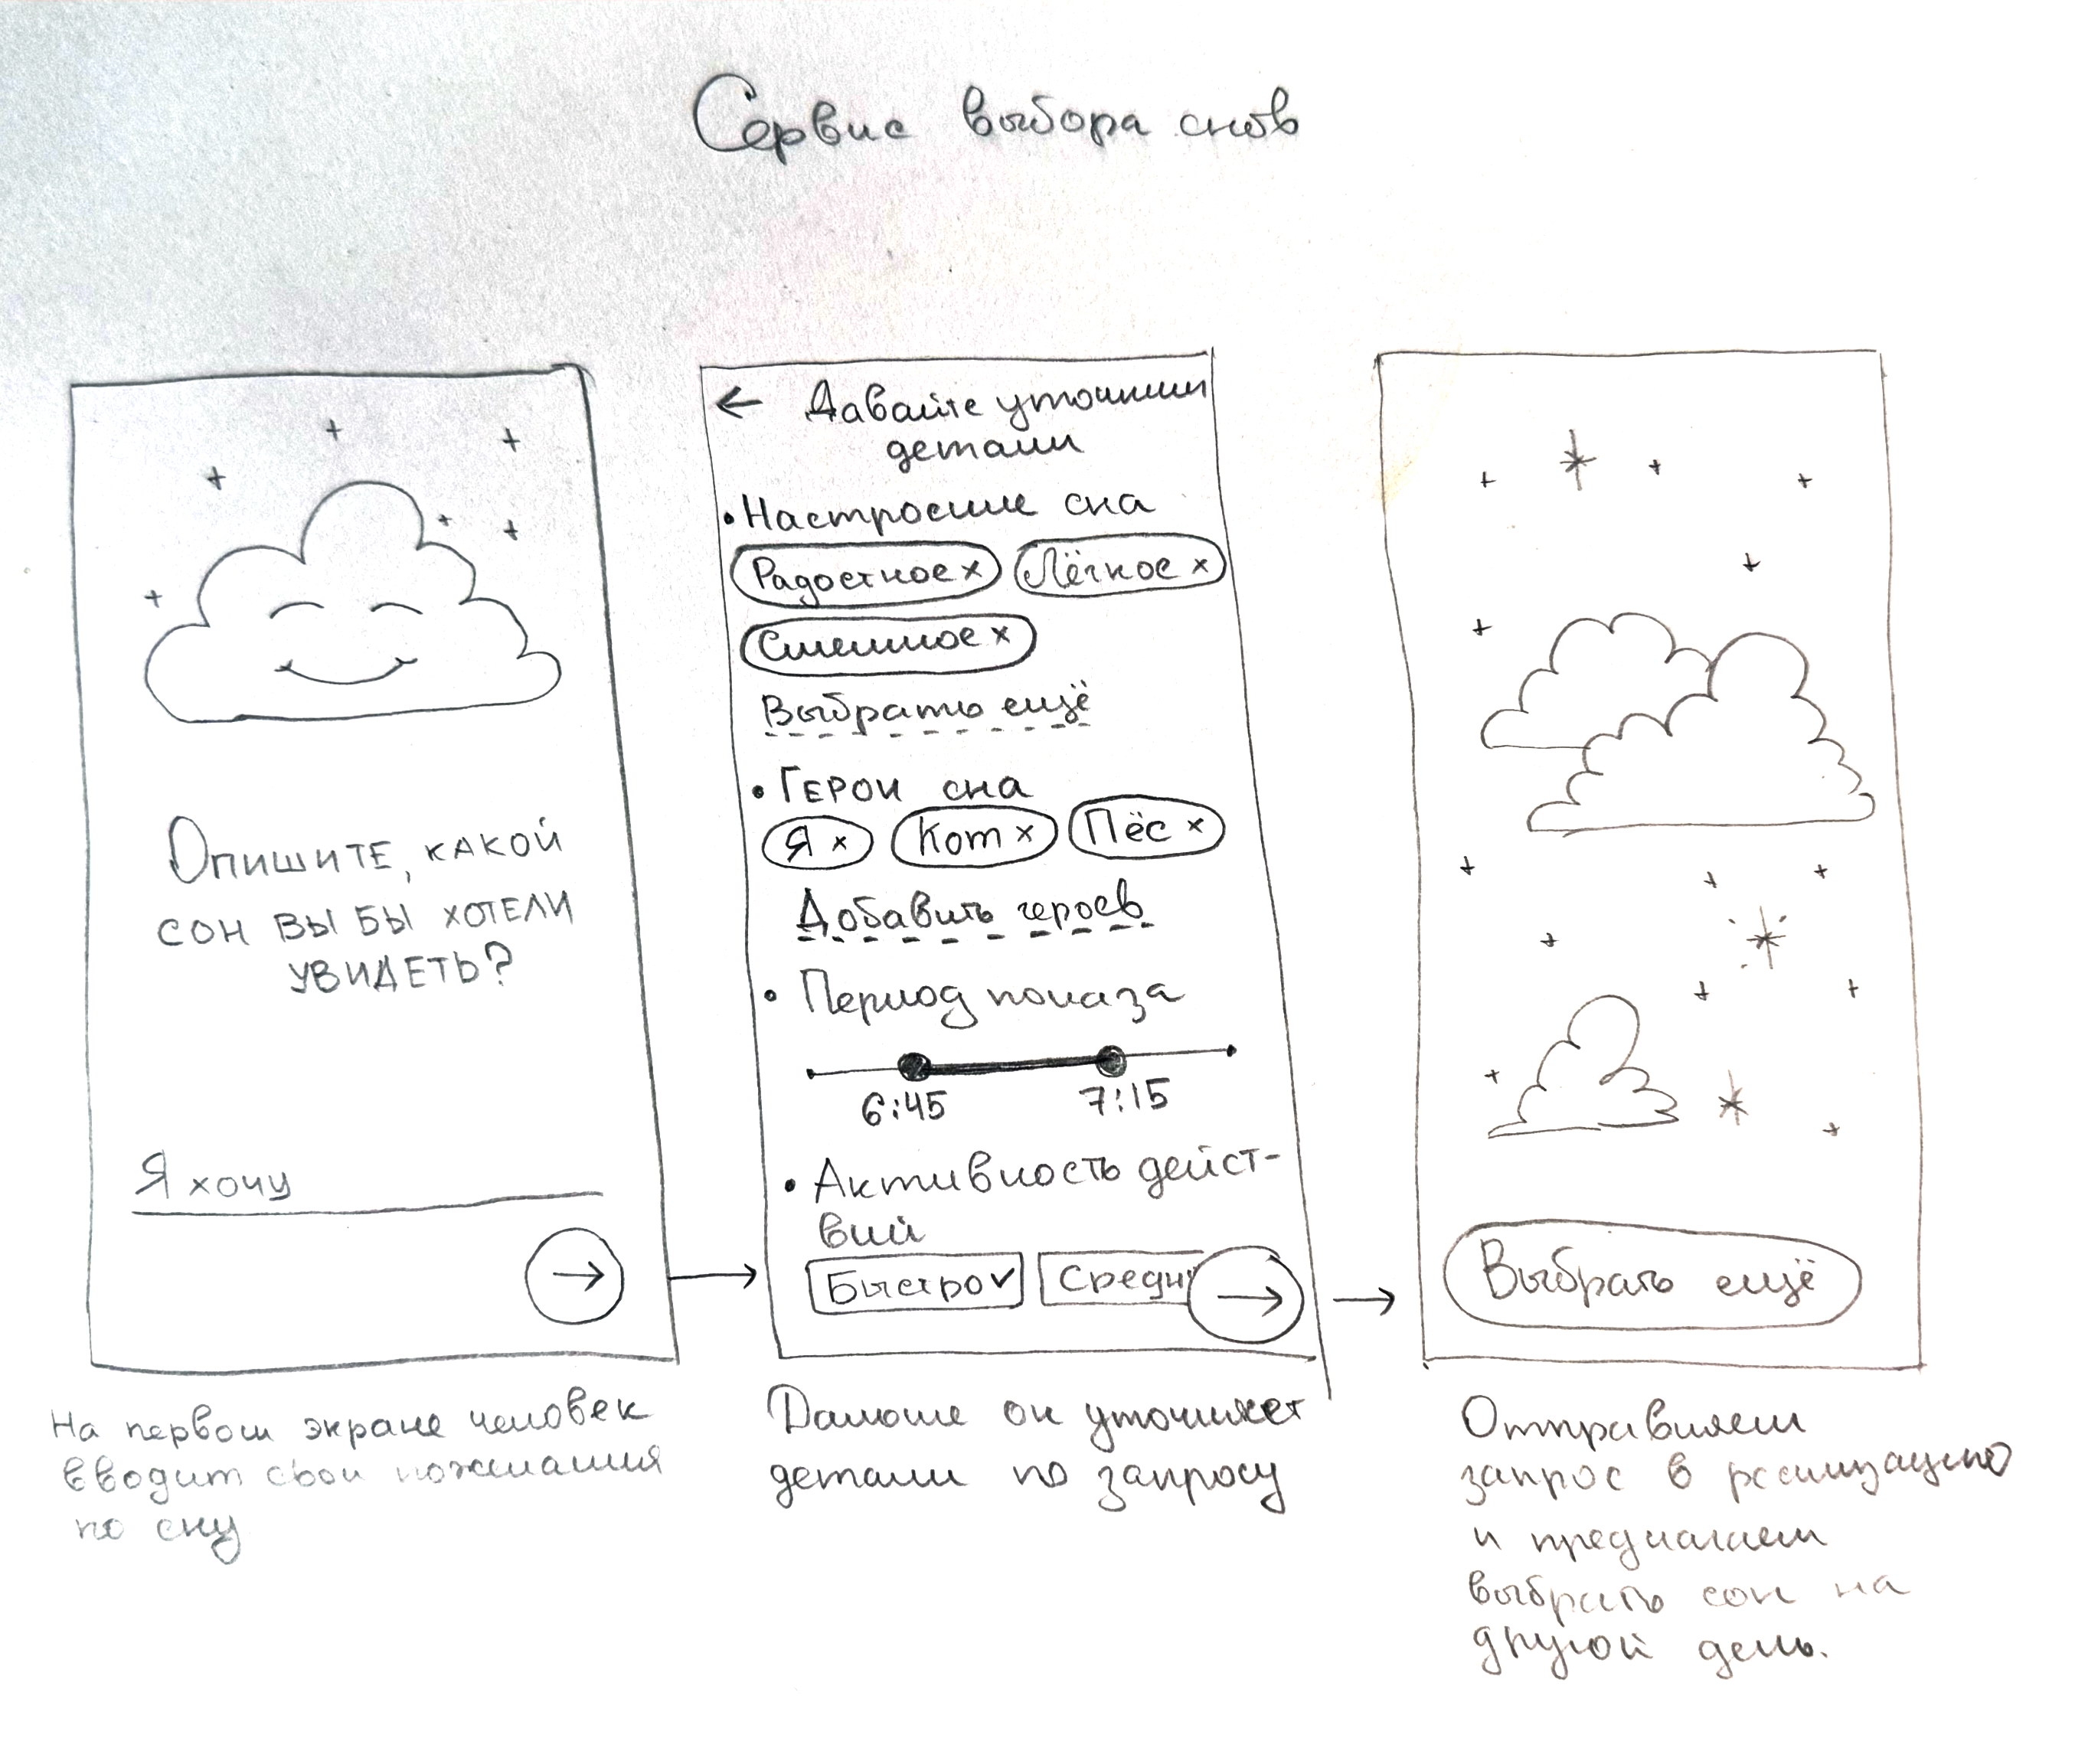 Сервис выбора снов
Опишите, какой
сон вы бы хотели
увидеть?
Я хочу
→
На первом экране человек
вводит свои пожелания
по сну
← Давайте уточним
детали
• Настроение сна
Радостное × Лёгкое ×
Смешное ×
Выбрать ещё
• Герои сна
Я × Кот × Пёс ×
Добавить героев
• Период показа
6:45 7:15
• Активность дейст-
вий
Быстро ✓ Средн →
Дальше он уточняет
детали по запросу
Выбрать ещё
Отправляем
запрос в реализацию
и предлагаем
выбрать сон на
другой день.